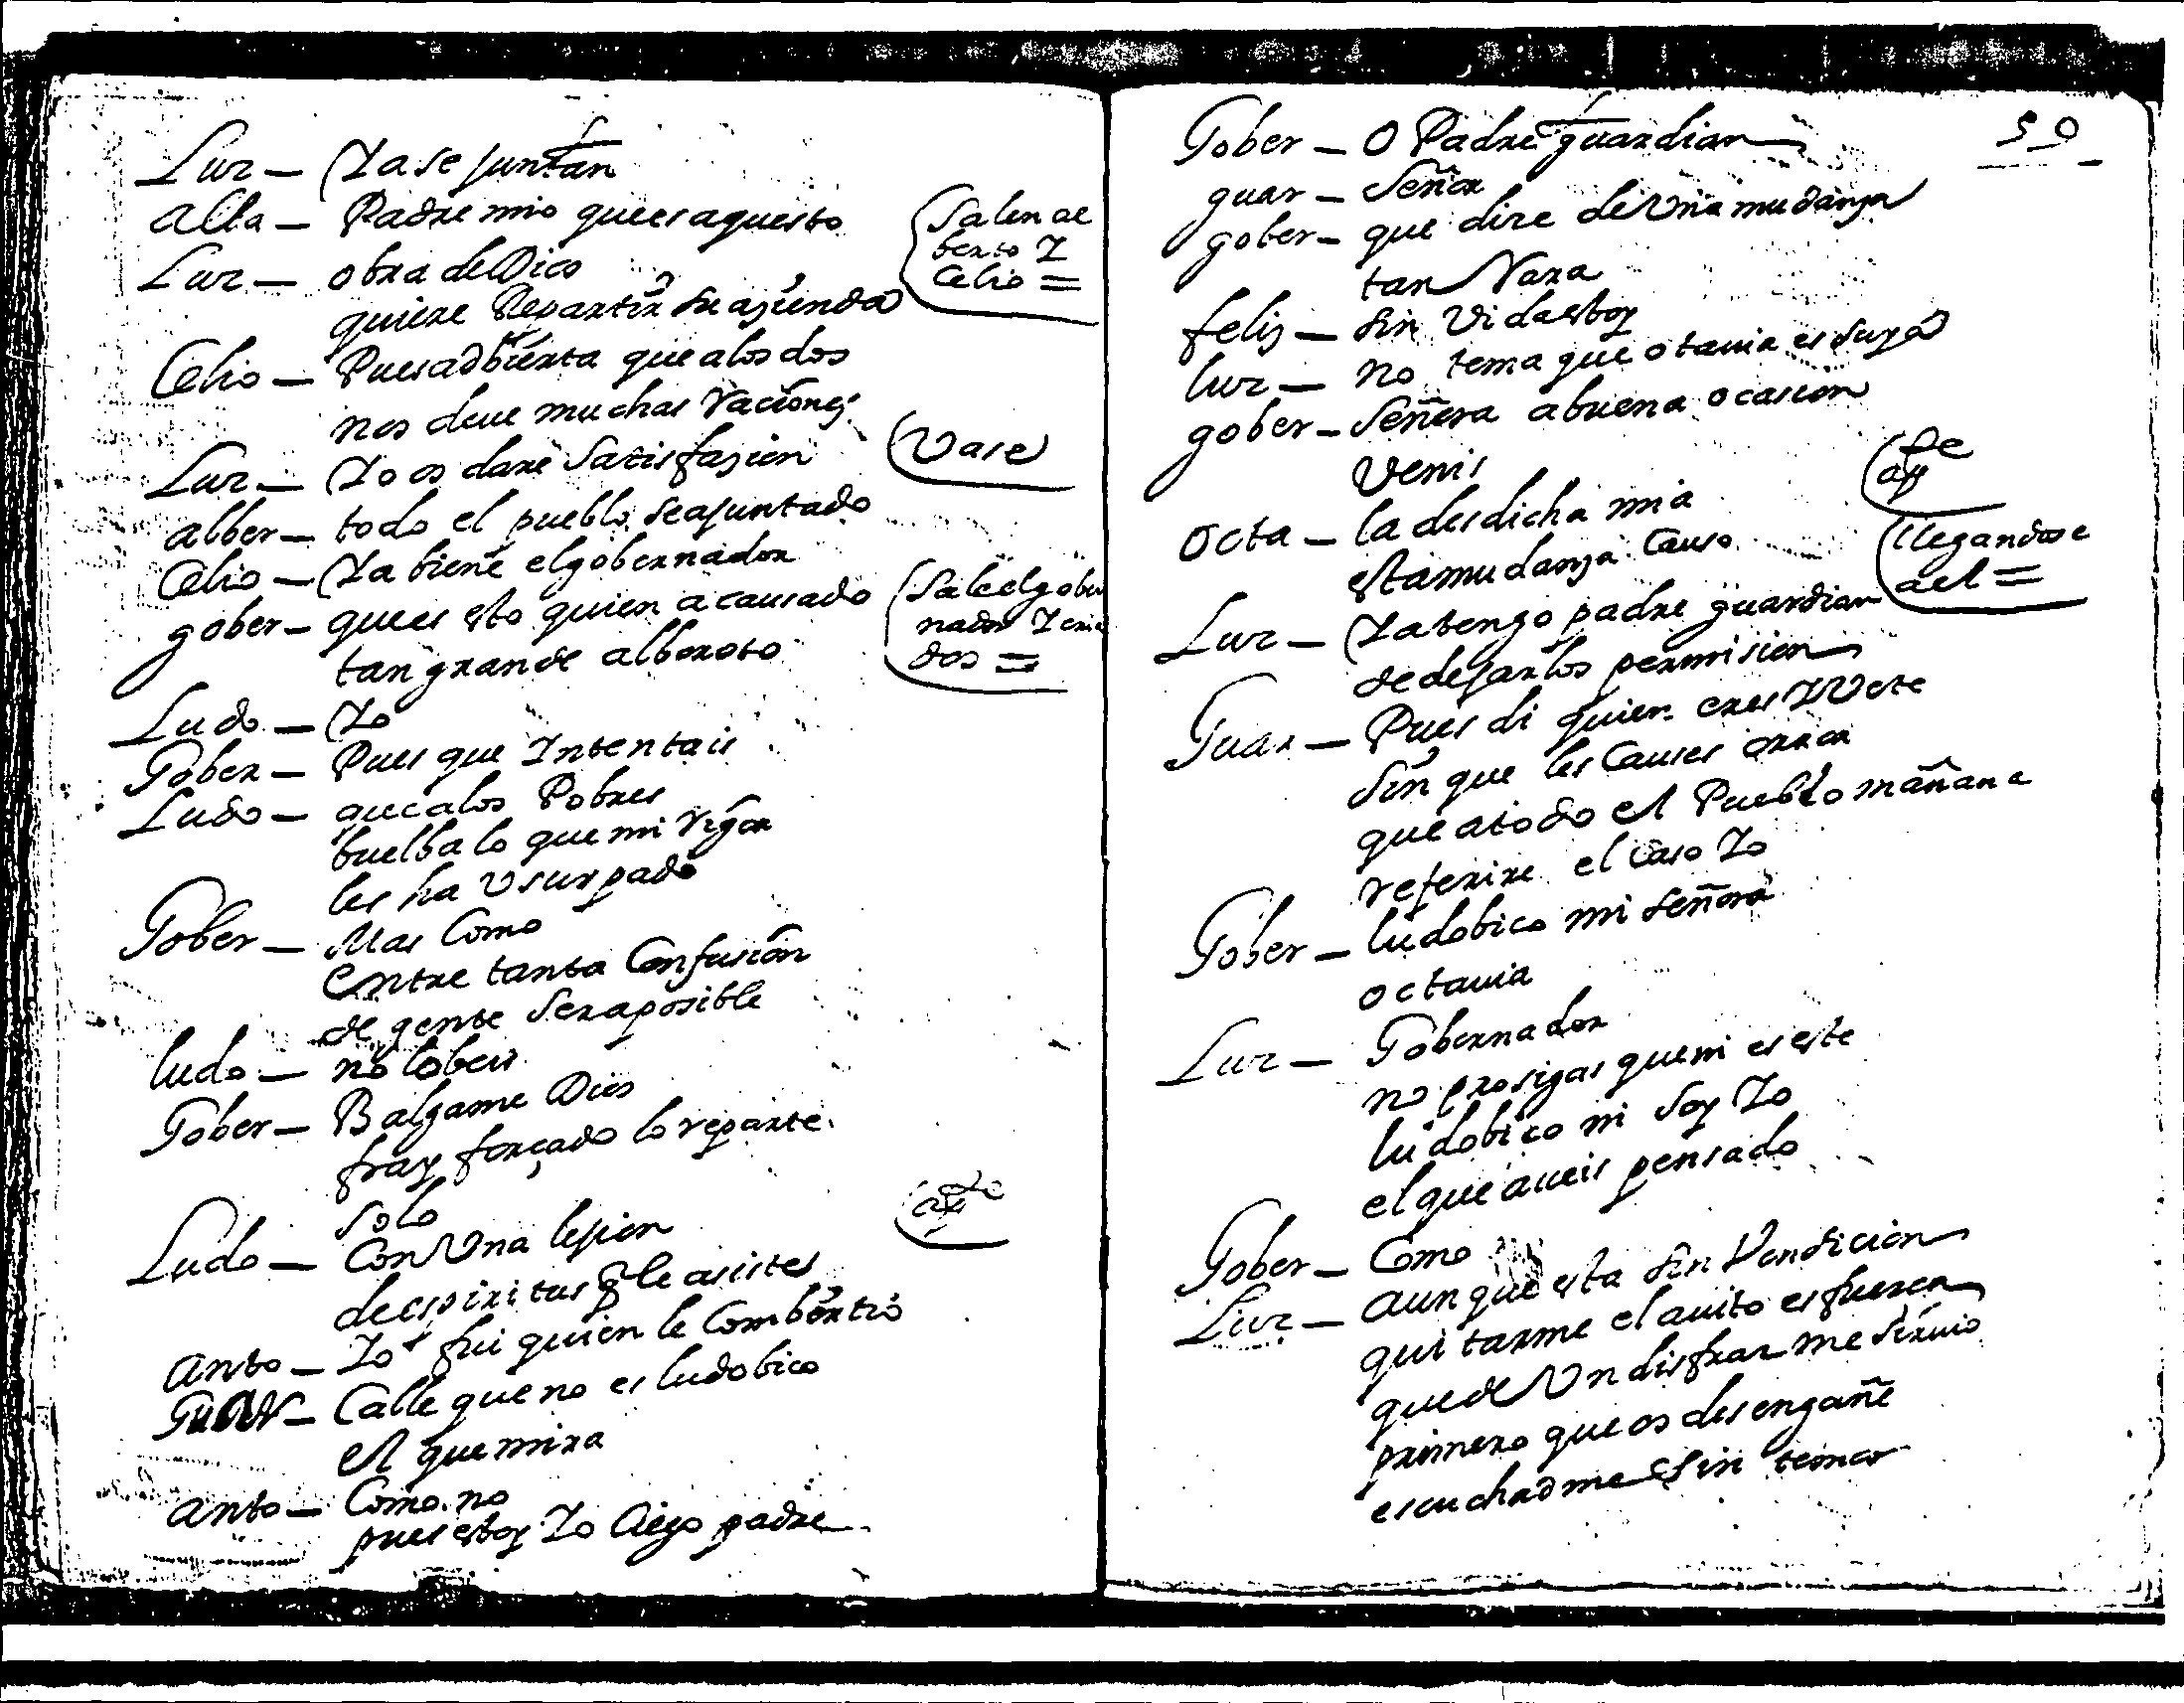 Luz — Ya se juntan
alba — Padre mio que es aquesto
Salen al
berto Y
Celio =
Luz — obra de Dios
quiere Repartir su açienda
Celio — Pues adbierta que a los dos
nos deue muchas Raciones
Luz — Yo os dare Satisfazion
Vase
alber — todo el pueblo se a juntado
Celio — Ya biene el gobernador
gober — que es esto quien a causado
tan grande alboroto
Sale el gober
nador Y cria
dos =
Ludo — Yo
Gober — Pues que Intentais
Ludo — que a los Pobres
buelba lo que mi rigor
les ha Vsurpado
Gober — Mas Como
Entre tanta Confusion
de gente Sera posible
ludo — no lo beis
Gober — Balgame Dios
fray forçado lo reparte
Solo
ap^te
Ludo — Con Vna lejion
de espiritus q le asistes
anto — Yo fui quien le Combertio
Guar — Calle que no es ludobico
el que mira
anto — Como no
pues estoy Yo Ciego padre
50
Gober — O Padre guardian
guar — Señor
gober — que dize de Vna mudanza
tan Rara
feliz — Sin Vida estoy
luz — no tema que otauia es suya
gober — Señora a buena ocasion
Venis
Octa — la desdicha mia
ap^te
esta mudanza Causo
Luz — Ya tengo padre guardian
llegandose
a el =
de dejarlos permision
Guar — Pues di quien eres Y Vete
Sin que les Causes orror
que a todo el Pueblo mañana
referire el Caso Yo
Gober — ludobico mi Señora
octauia
Luz — Gobernador
no prosigas que ni es este
ludobico ni Soy Yo
el que aueis pensado
Gober — Como
Luz — aunque esta Sin Vendicion
quitarme el auito es fuerza
que de Vn disfraz me Siruio
primero que os desengañe
escuchadme Sin temor